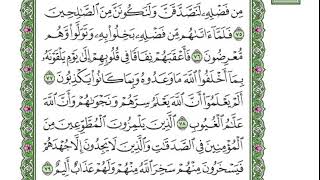 مِن فَضْلِهِۦ لَنَصَّدَّقَنَّ وَلَنَكُونَنَّ مِنَ ٱلصَّٰلِحِينَ
۝٧٥ فَلَمَّآ ءَاتَىٰهُم مِّن فَضْلِهِۦ بَخِلُوا۟ بِهِۦ وَتَوَلَّوا۟ وَّهُم
مُّعْرِضُونَ ۝٧٦ فَأَعْقَبَهُمْ نِفَاقًا فِى قُلُوبِهِمْ إِلَىٰ يَوْمِ يَلْقَوْنَهُۥ
بِمَآ أَخْلَفُوا۟ ٱللَّهَ مَا وَعَدُوهُ وَبِمَا كَانُوا۟ يَكْذِبُونَ ۝٧٧
أَلَمْ يَعْلَمُوٓا۟ أَنَّ ٱللَّهَ يَعْلَمُ سِرَّهُمْ وَنَجْوَىٰهُمْ وَأَنَّ ٱللَّهَ
عَلَّٰمُ ٱلْغُيُوبِ ۝٧٨ ٱلَّذِينَ يَلْمِزُونَ ٱلْمُطَّوِّعِينَ مِنَ
ٱلْمُؤْمِنِينَ فِى ٱلصَّدَقَٰتِ وَٱلَّذِينَ لَا يَجِدُونَ إِلَّا جُهْدَهُمْ
فَيَسْخَرُونَ مِنْهُمْ سَخِرَ ٱللَّهُ مِنْهُمْ وَلَهُمْ عَذَابٌ أَلِيمٌ ۝٧٩